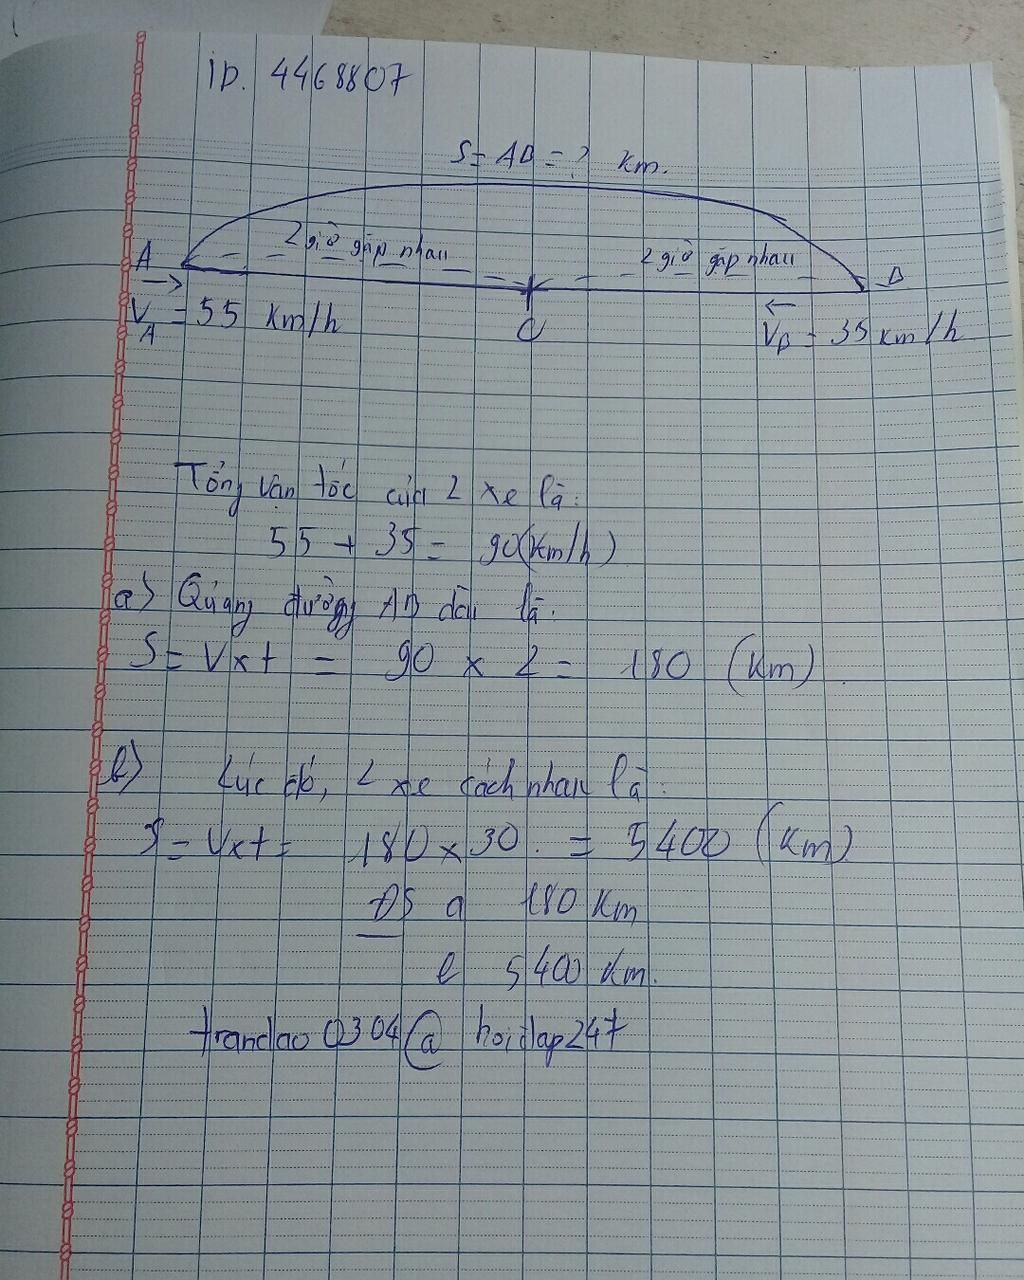 ID. 4468807
S = AB = ? km.
2 giờ gặp nhau
2 giờ gặp nhau
A
B
V_A = 55 km/h
C
V_B = 35 km/h
Tổng vận tốc của 2 xe là:
55 + 35 = 90(km/h)
a) Qúang đường AB dài là:
S = V x t = 90 x 2 = 180 (km)
b) Lúc đó, 2 xe cách nhau là:
S = V x t = 180 x 30 = 5400 (km)
ĐS a 180 km
b 5400 km.
trandao0304@hoidap247